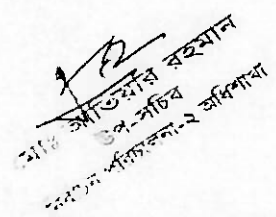 আতিয়ার রহমান
উপ-সচিব
পরিচালনা-২ অধিশাখা